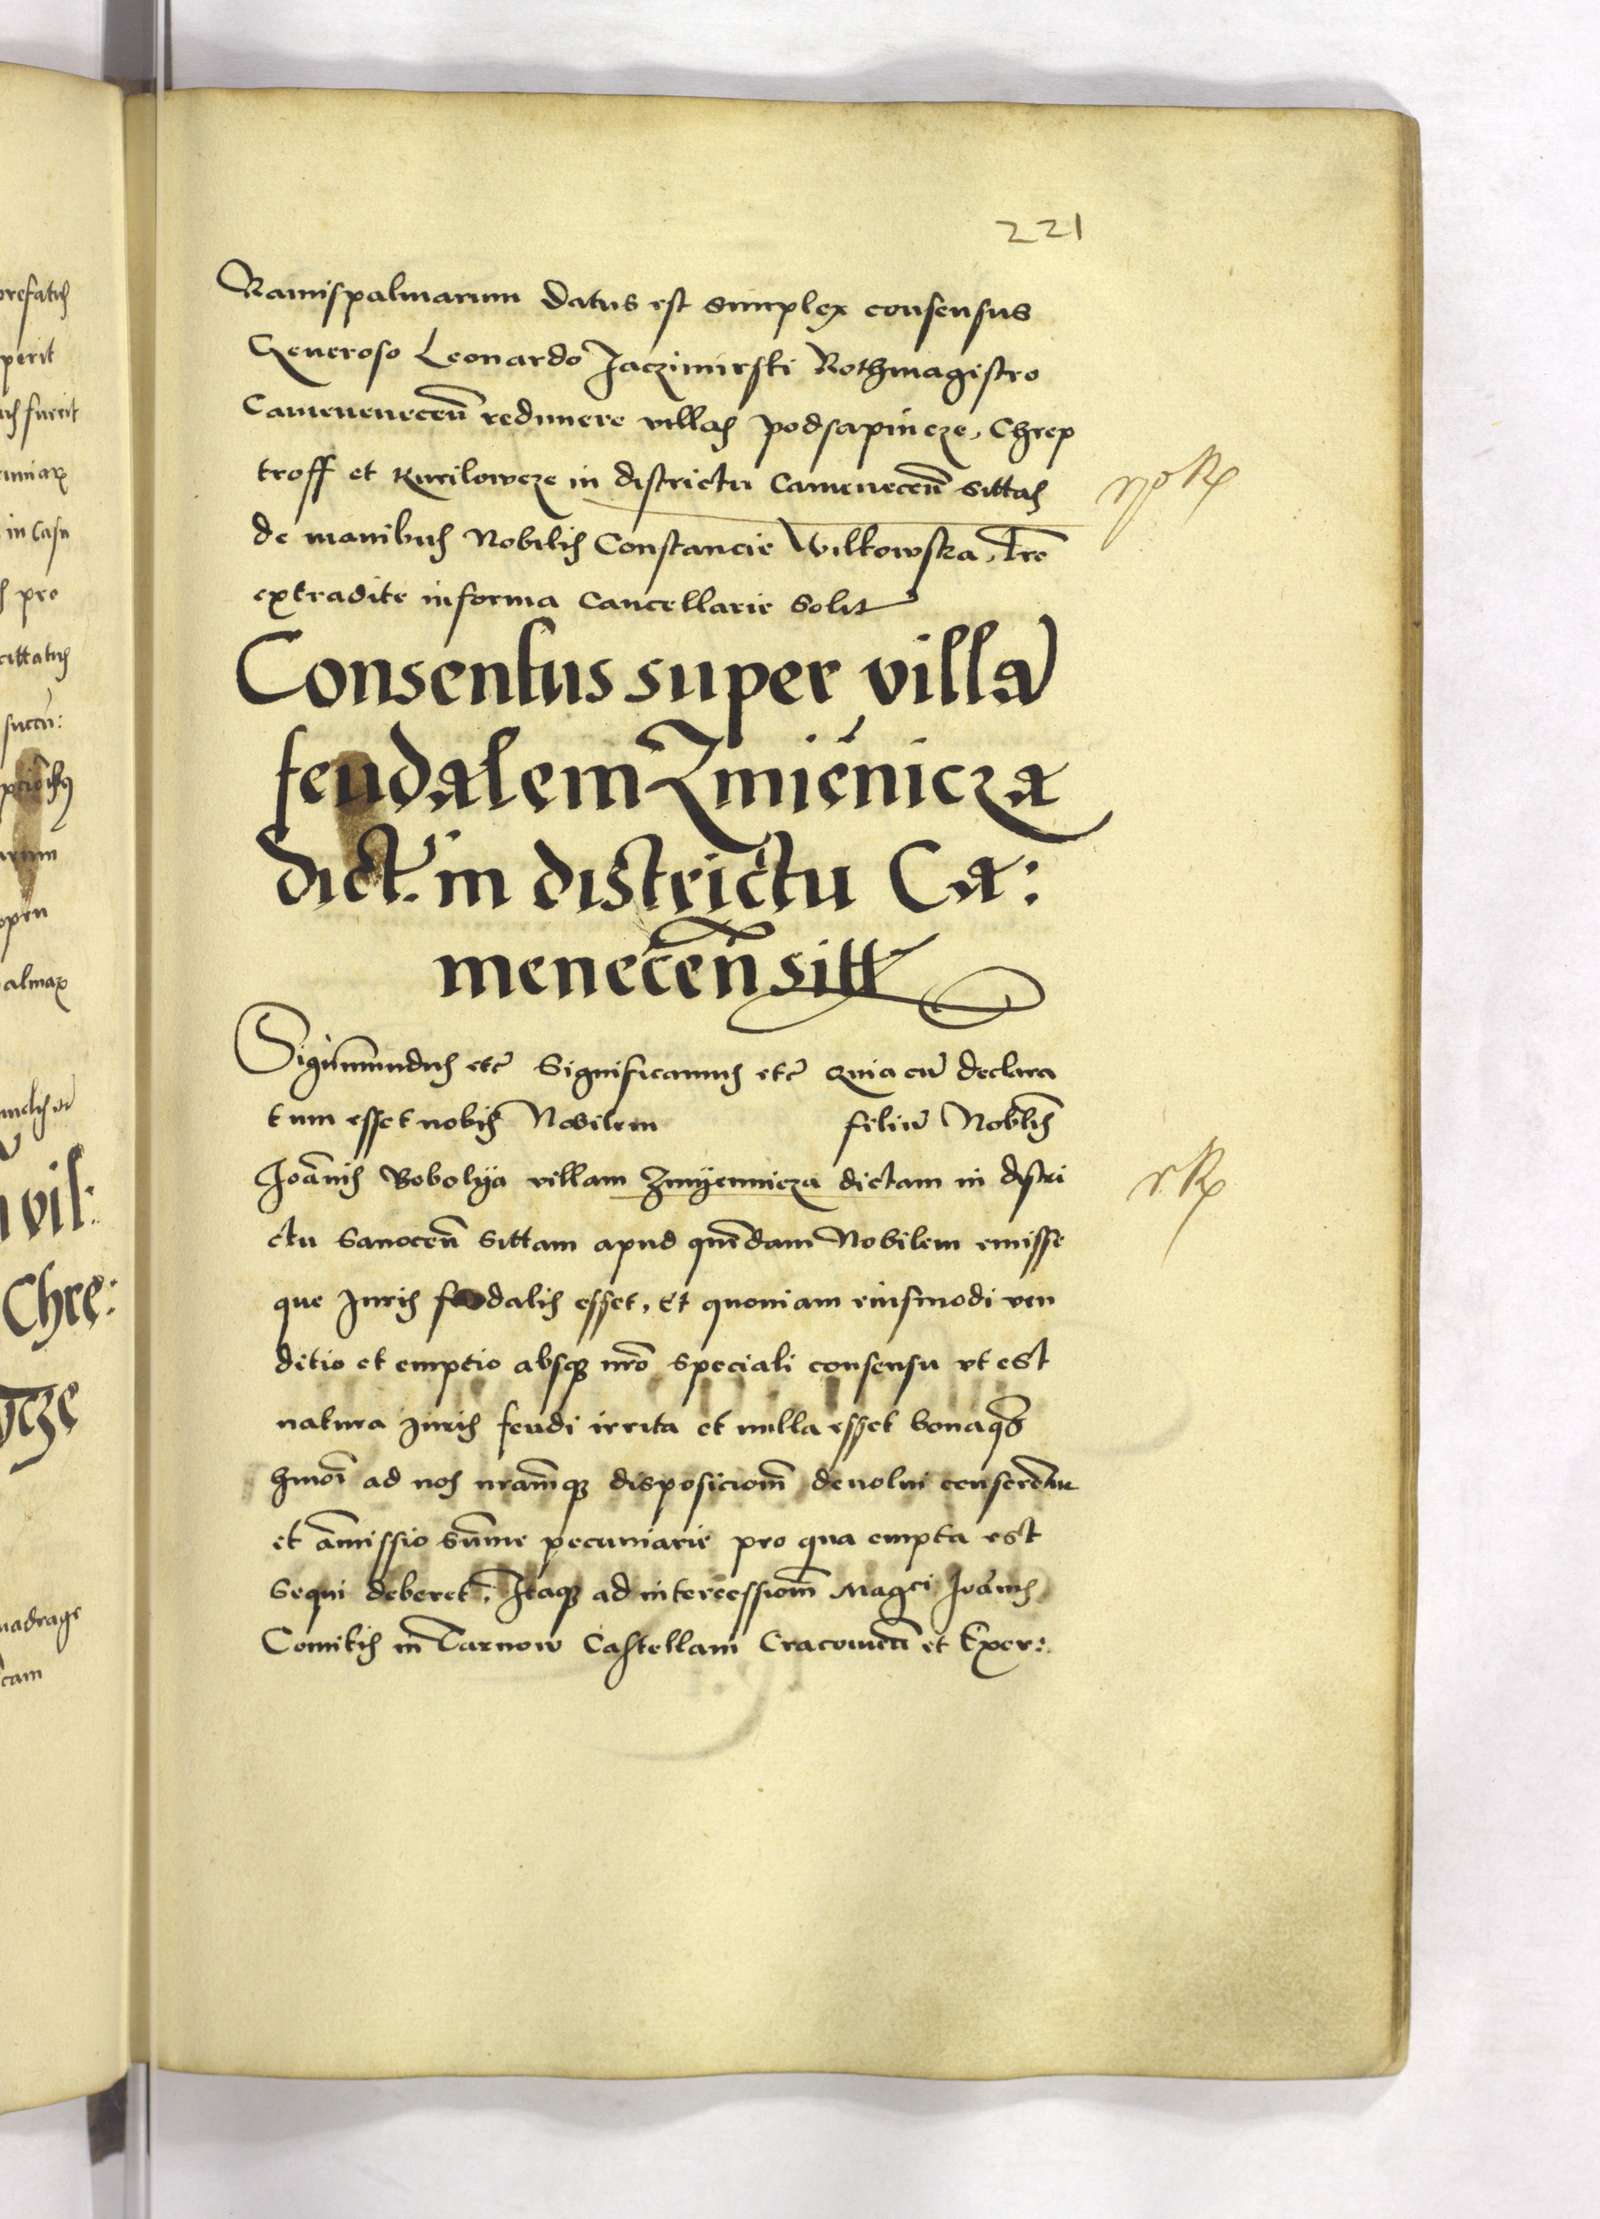 221
Ramispalmarum datus est simplex consensus
Generoso Leonardo Jaczimirski Rothmagistro
Camenecen̄ redimere villas podsapincze, Chrep
troff et Kuriloweze in districtu Camenecen̄ sittas
de manibus Nobilis Constancie Wilkowska, Lr̄e
extradite in forma Cancellarie solit
Consensus super villā
feudalem Zmienicza
dict. in districtu Ca:
menecen̄ sitt
Sigismundus etc̄ Significamus etc̄ Quia cū declara
tum esset nobis Nobilem filiū Nobl̄is
Joān̄is Bobolya villam Zmyennicza dictam in distri
ctu Sanocen̄ sittam apud quēdam Nobilem emisse
que Juris feudalis esset, Et quoniam eiusmodi ven
ditio et emptio absq̨ nr̄o speciali consensu vt est
natura Juris feudi irrita et nulla esset bonaq̨
hmōi ad nos nramq̨ disposiciom̄ deuolui censerētur
et āmissio sūme pecuniarie pro qua empta est
sequi deberet, Itaq̨ ad intercessiom̄ Magci Joānis
Comitis in Tarnow Castellani Cracouien̄ et Exer:
pils
Chrę:
nadrage
prefatus
perit
in Casu
pro
cittatus